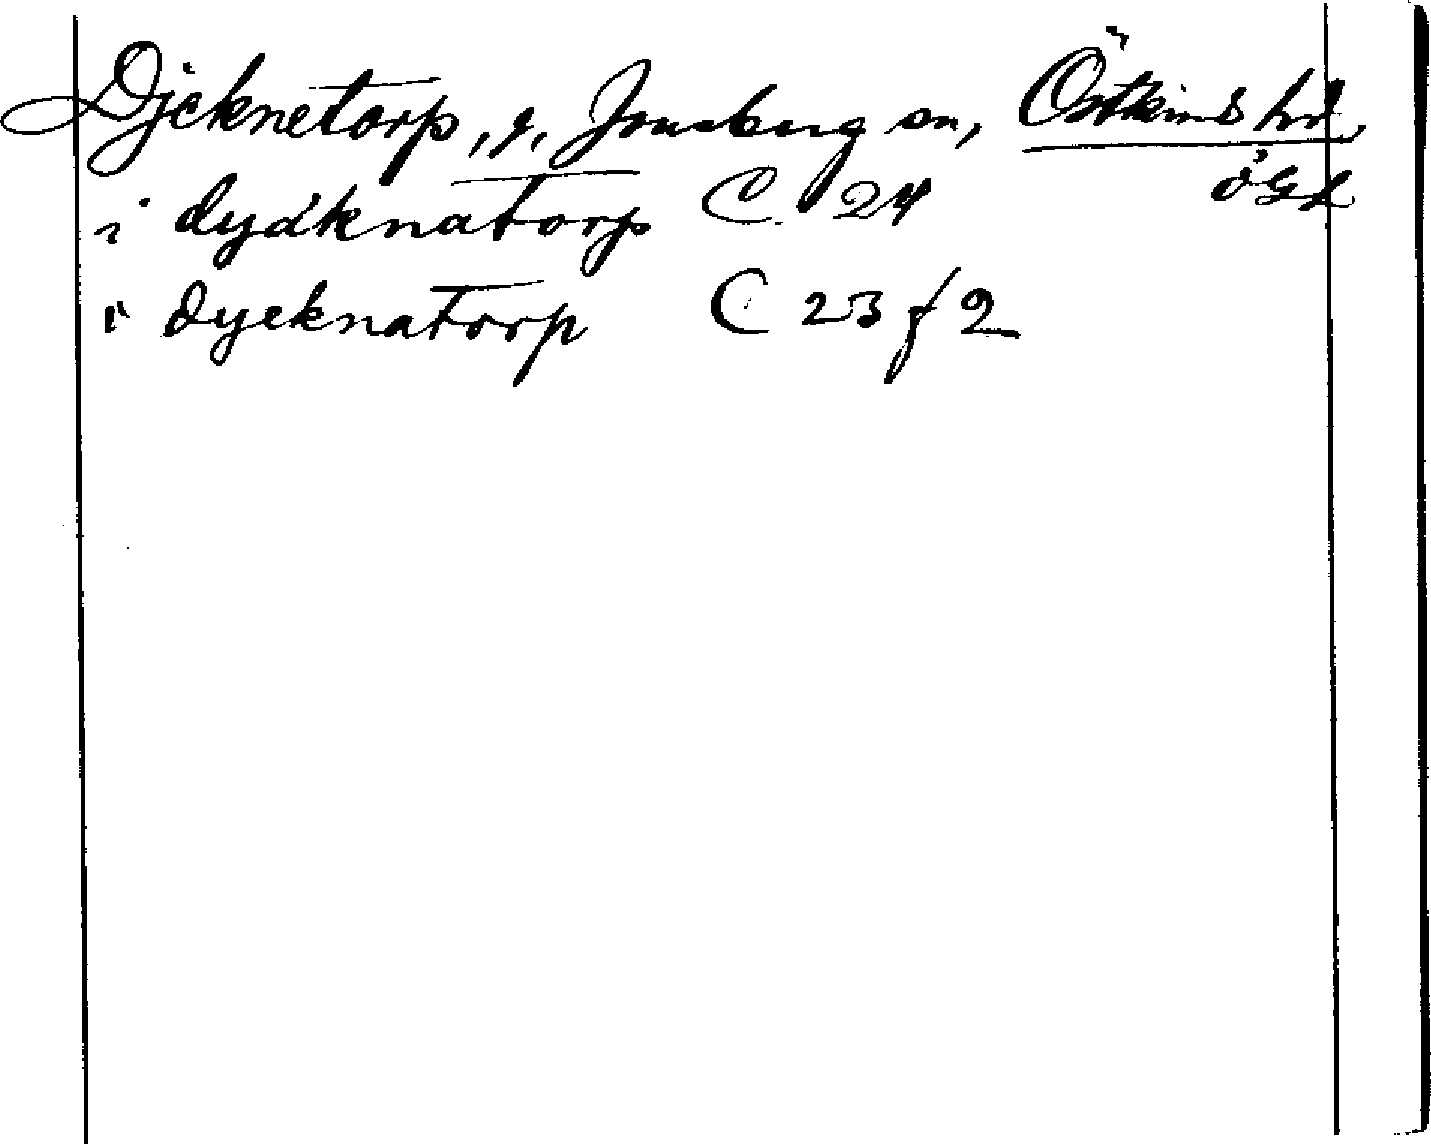 Djeknetorp, g, Jonsberg sn, Östkinds hd
ÖGL
i dydknatorp C 24
i dyeknatorp C 23 f 2